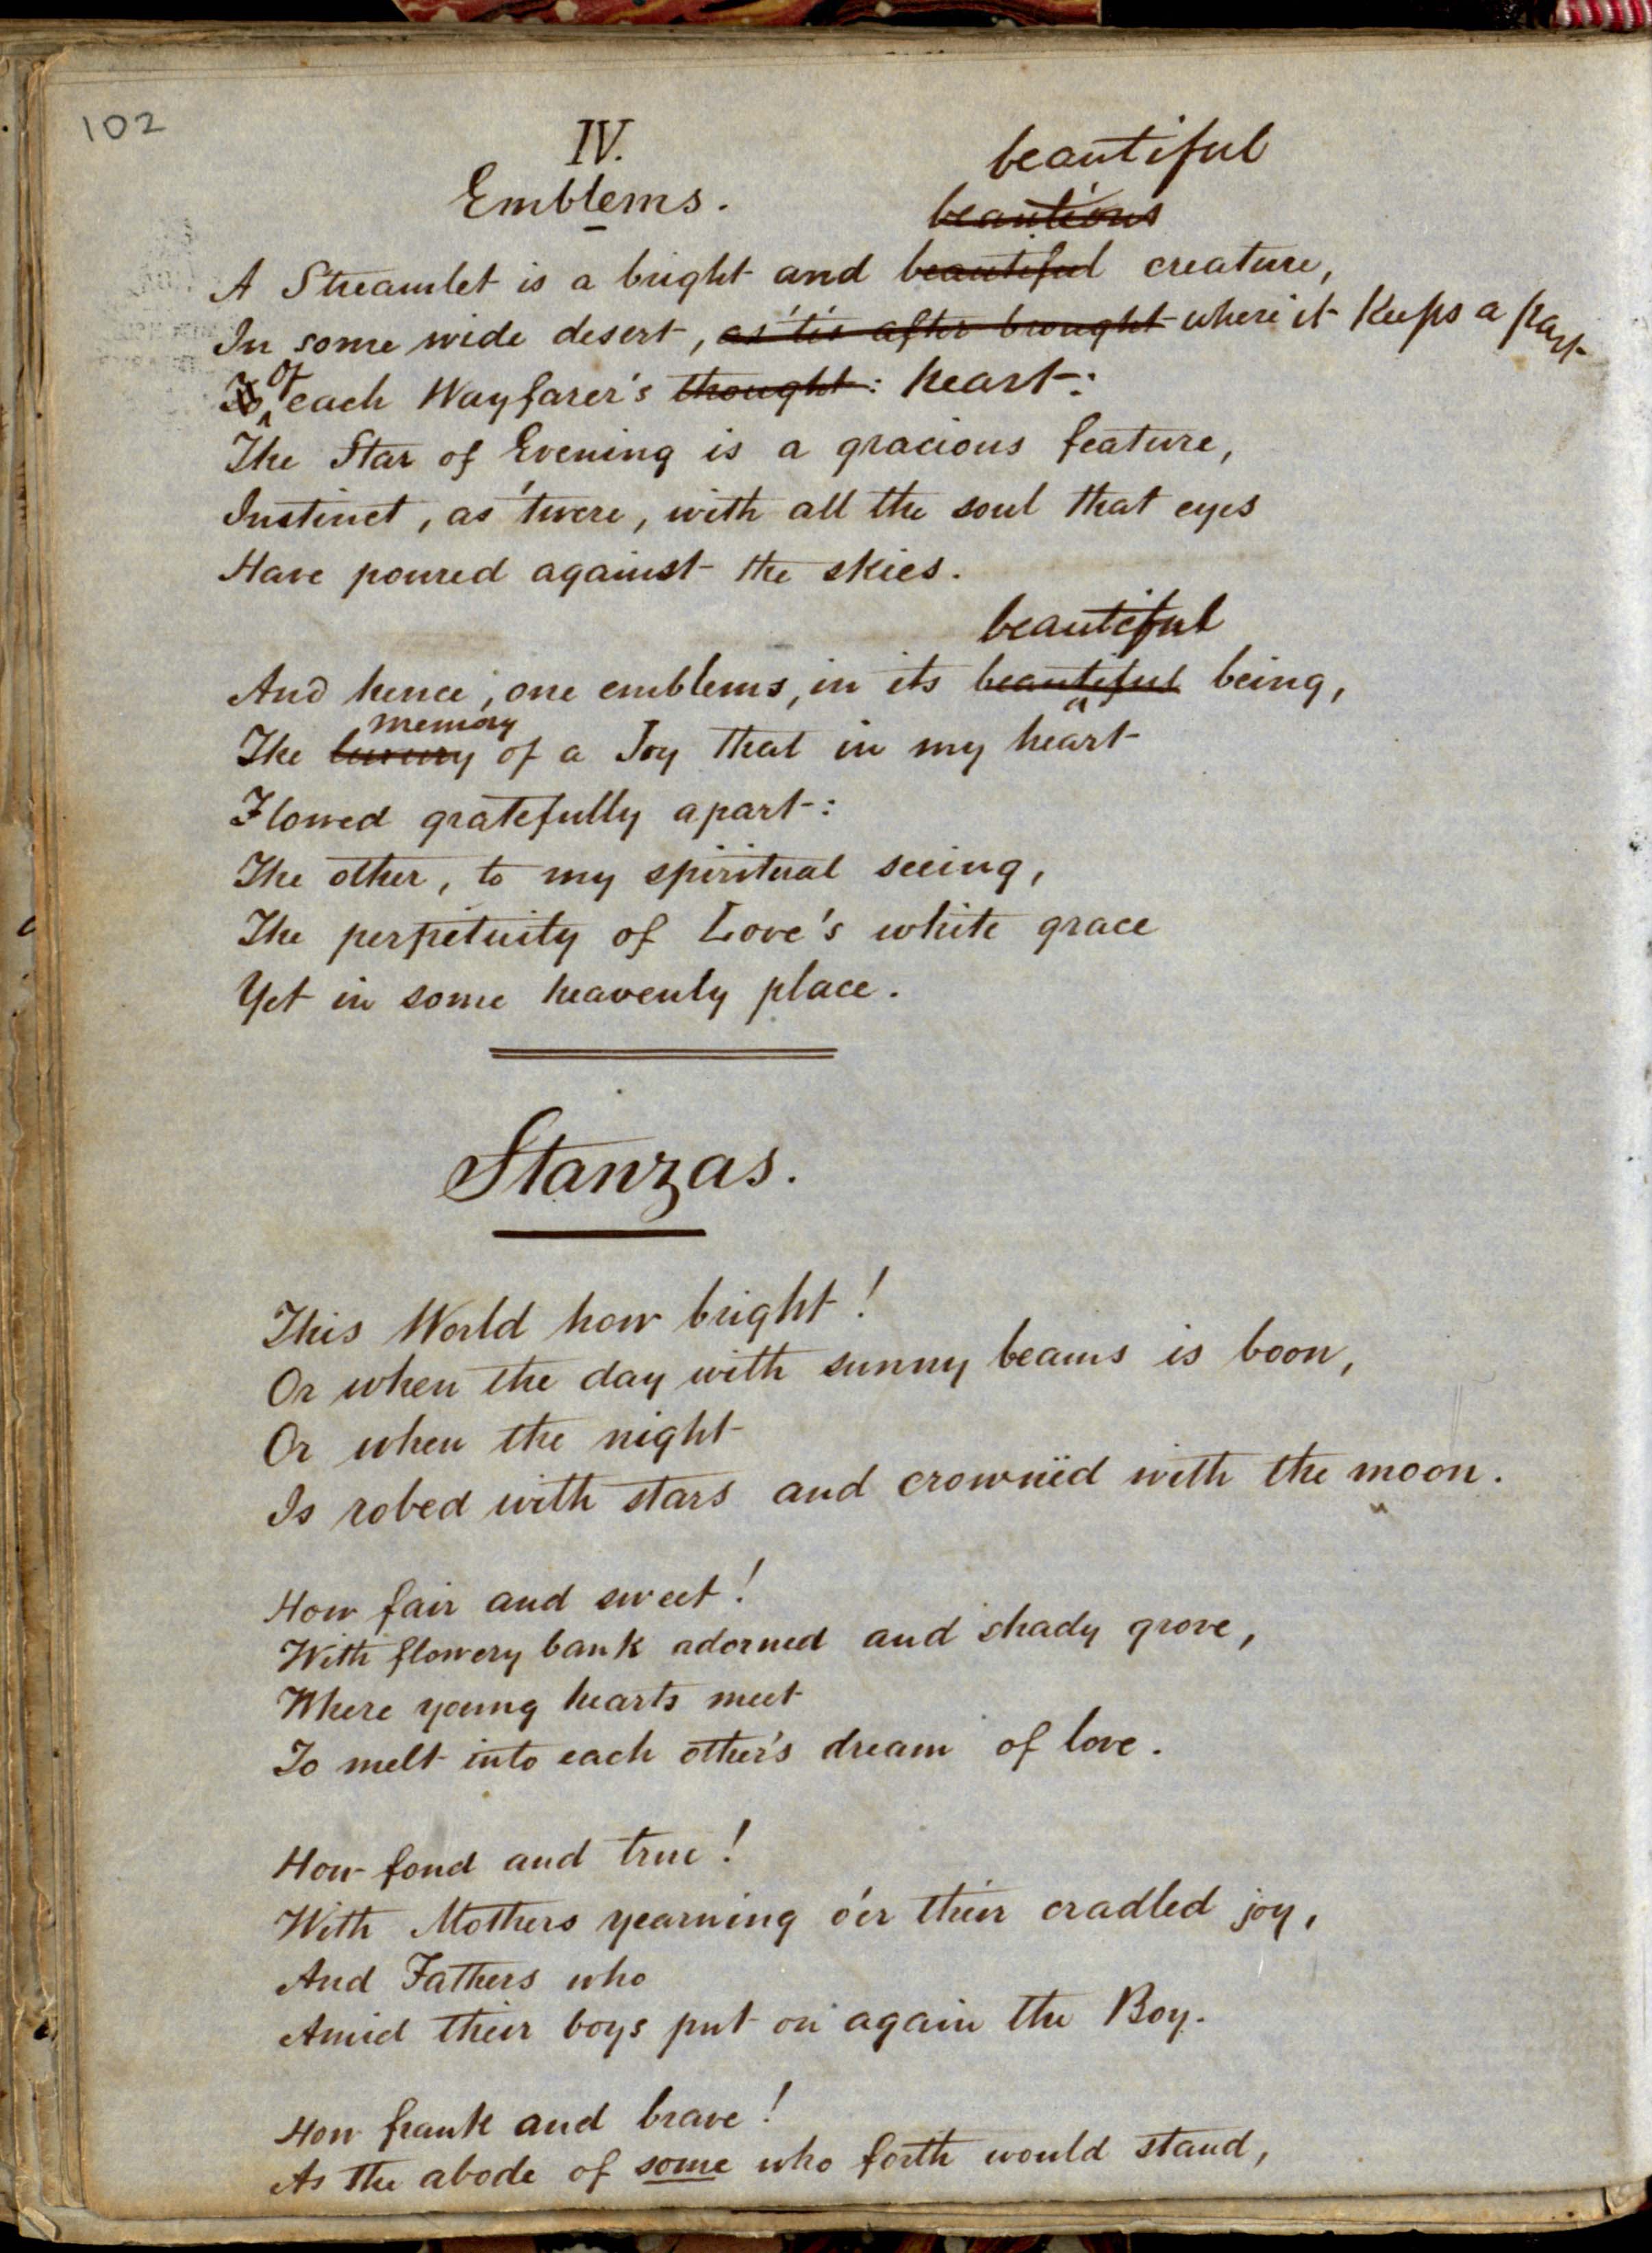 102
IV.
Emblems.
beautiful
beauteous
A Streamlet is a bright and beautiful creature,
In some wide desert, as 'tis after brought where it keeps a part
To of each Wayfarer's thought: heart:
The Star of Evening is a gracious feature,
Instinct, as 'twere, with all the soul that eyes
Have poured against the skies.
beautiful
And hence, one emblems, in its beautiful being,
memory
The luxury of a Joy that in my heart
Flowed gratefully apart:
The other, to my spiritual seeing,
The perpetuity of Love's white grace
Yet in some heavenly place.
Stanzas.
This World how bright!
Or when the day with sunny beams is boon,
Or when the night
Is robed with stars and crownëd with the moon.
How fair and sweet!
With flowery bank adorned and shady grove,
Where young hearts meet
To melt into each other's dream of love.
How fond and true!
With Mothers yearning o'er their cradled joy,
And Fathers who
Amid their boys put on again the Boy.
How frank and brave!
As the abode of some who forth would stand,